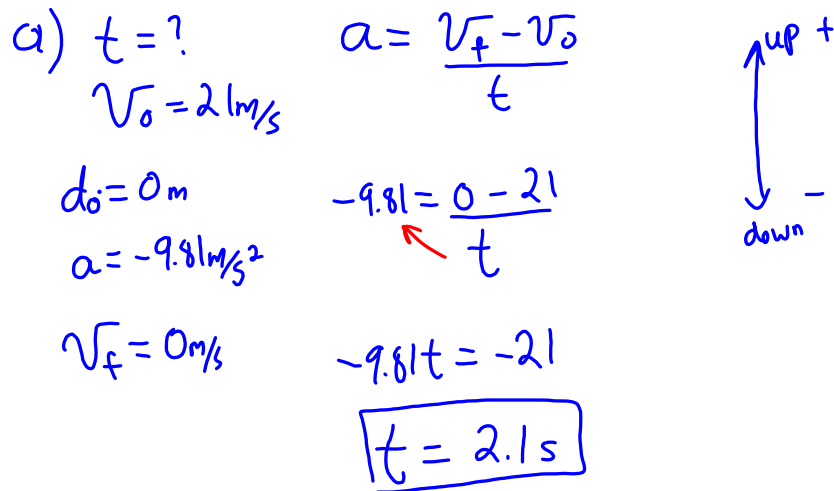 a) t = ?
V₀ = 21m/s
d₀ = 0m
a = -9.81m/s²
V_f = 0m/s
a = (V_f - V₀) / t
-9.81 = (0 - 21) / t
-9.81t = -21
t = 2.1s
up +
down -